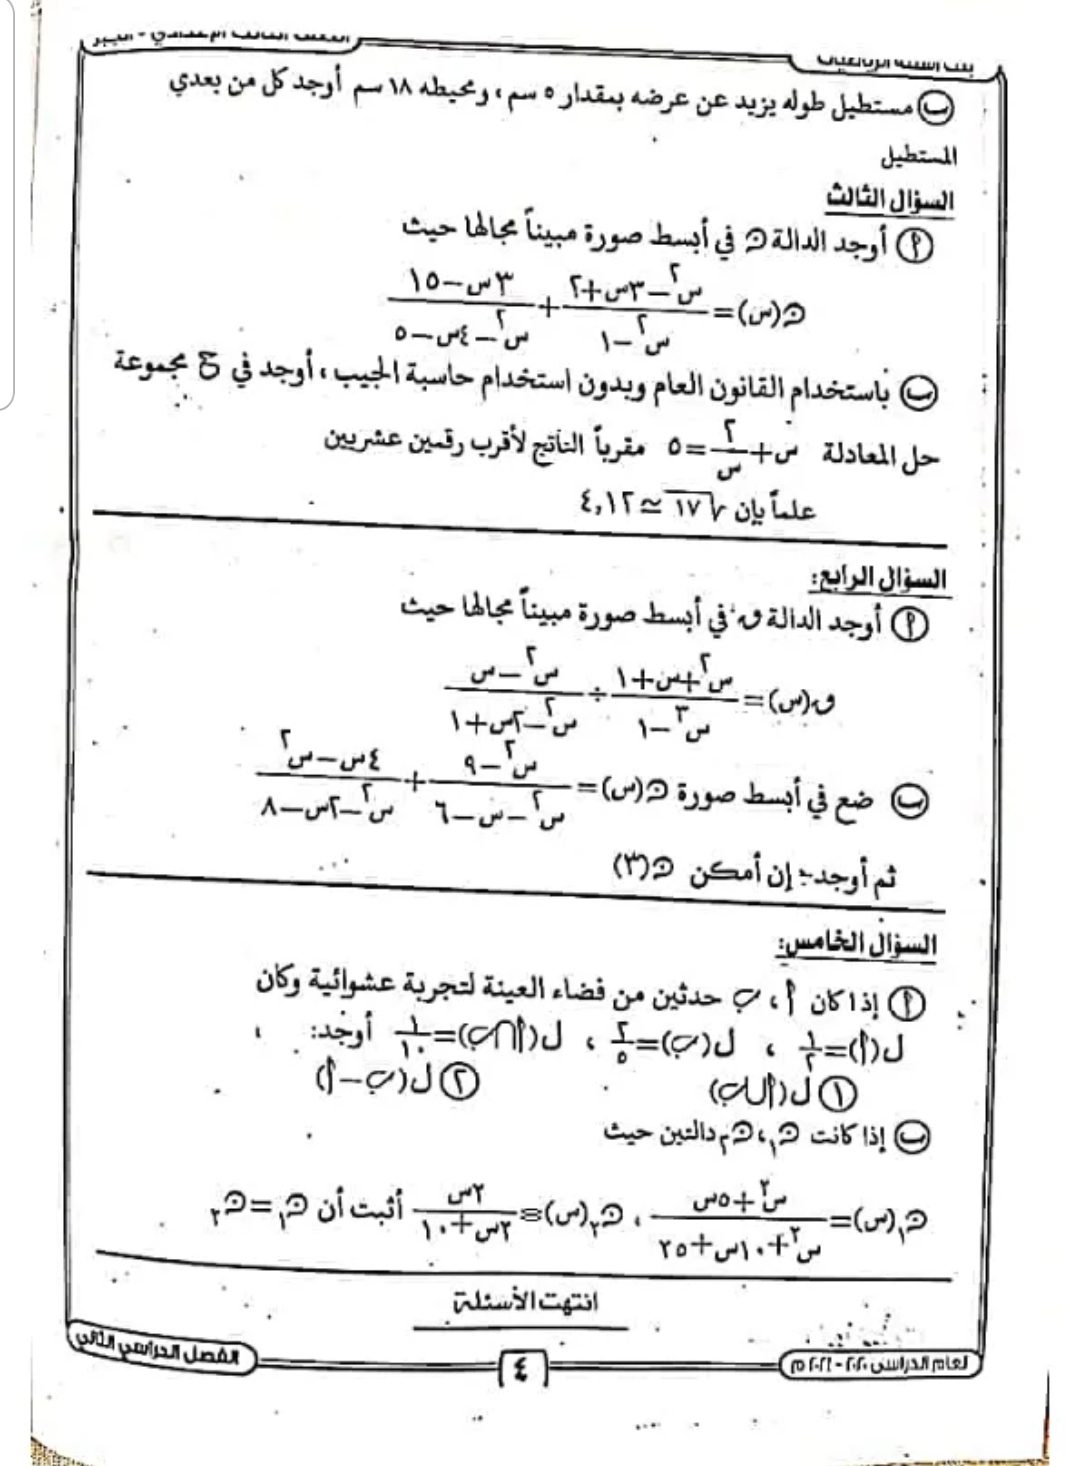 بنك أسئلة الرياضيات
الصف الثالث الإعدادي - الجبر
ب مستطيل طوله يزيد عن عرضه بمقدار ٥ سم ، ومحيطه ١٨ سم أوجد كل من بعدي
المستطيل
السؤال الثالث
أ أوجد الدالة ن في أبسط صورة مبيناً مجالها حيث
ن(س) = (س٢ − ٣س + ٢)/(س٢ − ١) + (٣س − ١٥)/(س٢ − ٤س − ٥)
ب باستخدام القانون العام وبدون استخدام حاسبة الجيب ، أوجد في ح مجموعة
حل المعادلة س + ٢/س = ٥ مقرباً الناتج لأقرب رقمين عشريين
علماً بإن √١٧ ≃ ٤,١٢
السؤال الرابع:
أ أوجد الدالة ن في أبسط صورة مبيناً مجالها حيث
ن(س) = (س٢ + س + ١)/(س٣ − ١) ÷ (س٢ − س)/(س٢ − ٢س + ١)
ب ضع في أبسط صورة ن(س) = (س٢ − ٩)/(س٢ − س − ٦) + (٤س − س٢)/(س٢ − ٢س − ٨)
ثم أوجد إن أمكن ن(٣)
السؤال الخامس:
أ إذا كان أ ، ب حدثين من فضاء العينة لتجربة عشوائية وكان
ل(أ) = ١/٢ ، ل(ب) = ٢/٥ ، ل(أ∩ب) = ١/١٠ أوجد:
١ ل(أ∪ب) ٢ ل(ب − أ)
ب إذا كانت ن١ ، ن٢ دالتين حيث
ن١(س) = (س٢ + ٥س)/(س٢ + ١٠س + ٢٥) ، ن٢(س) = ٢س/(٢س + ١٠) أثبت أن ن١ = ن٢
انتهت الأسئلة
لعام الدراسي ٢٠٢٠ - ٢٠٢١ م
٤
الفصل الدراسي الثاني